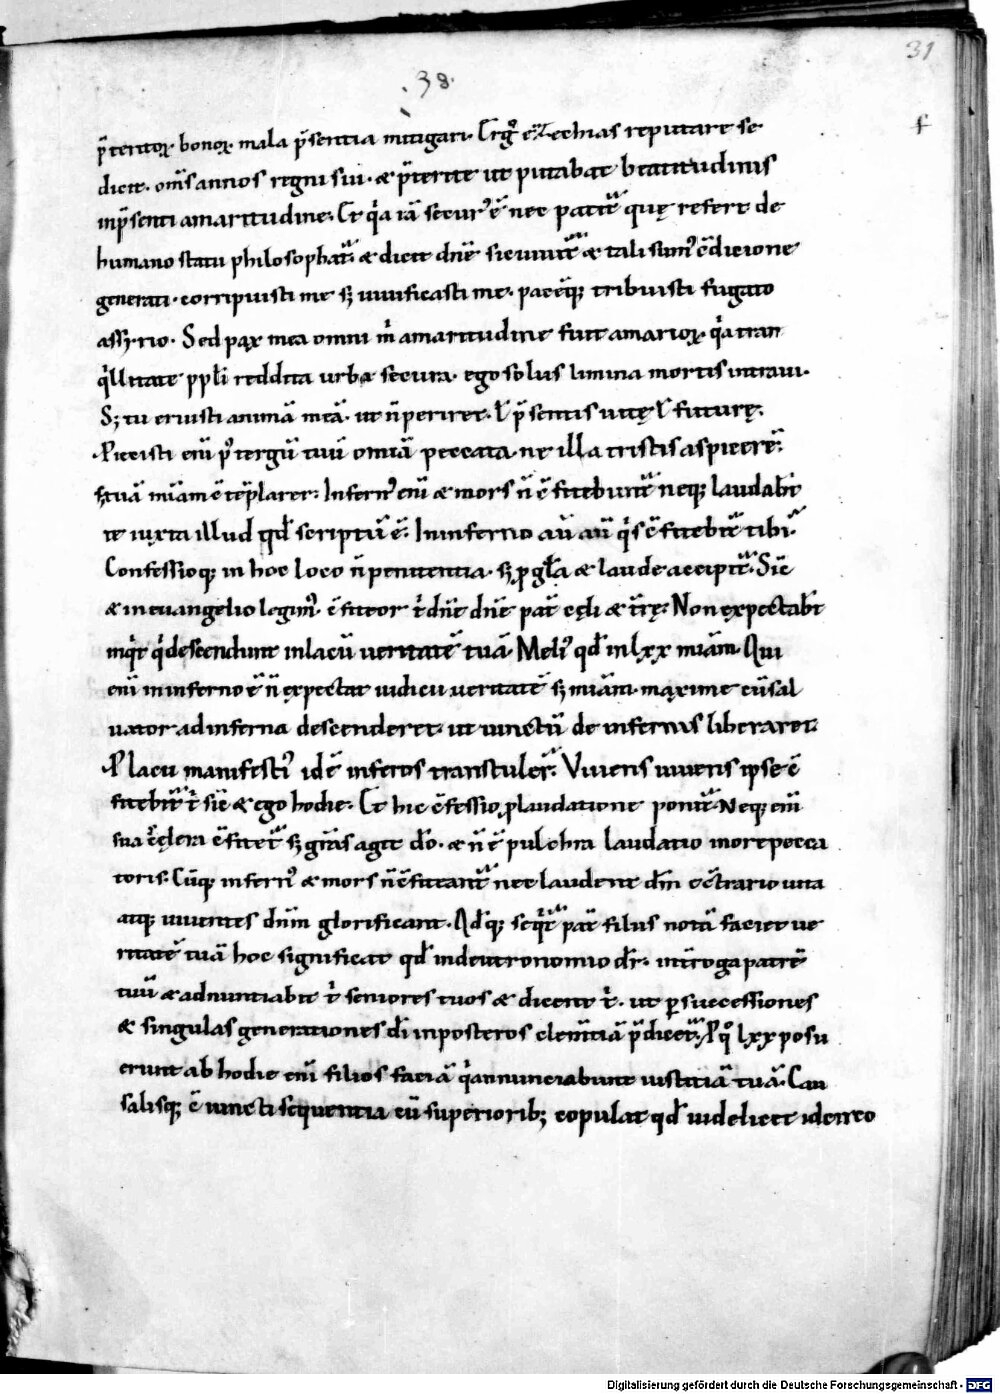 31
.38.
p̄teritoꝝ. bonoꝝ. mala p̄sentia mitigari. Ergͦ ezechias reputare se
dicit. om̄s annos regni sui. & p̄terite ut putabat beatitudinis
inp̄senti amaritudine. Et qͥa iā secur᷒ ē nec patit᷑ quę refert de
humano statu philosophat᷑ & dicit dn̄e sic uiuit᷑ & tali sum᷒ c̄dicione
generati. corripuisti me sꝫ uiuificasti me. pacēqꝫ tribuisti fugato
assyrio. Sed pax mea omni m̄ amaritudine fuit amarior. qͥa tran
qͥllitate ppl̄i reddita urbe secura. ego solus limina mortis intraui.
Sꝫ tu eruisti animā meā. ut n̄ periret. ł p̄sentis uitę ł futurę.
Proiecisti eni᷑ p᷒ tergū tuū omīa peccata. ne illa tristis aspicerē.
sꝫ tuā mīam c̄tēplarer. Infern᷒ eni᷑ & mors n̄ c̄fitebunt᷑ neqꝫ laudabt̄
te iuxta illud qd̄ scriptū ē. In inferno aū qͥs c̄fitebit᷑ tibi.
Confessioqꝫ in hoc loco n̄ penitentia. sꝫ ꝓ gł̄a & laude accipit᷑. Sic̄
& in euangelio legim᷒. c̄fiteor t̄ dn̄e dn̄e pat̄ cęli & t̄rę. Non expectabt̄
inqͥt qͥ descendunt in lacū ueritatē tuā. Meli᷒ qd̄ in lxx mīam. Qui
eni᷑ in inferno ē n̄ expectat iudicii ueritatē sꝫ mīam. maxime cū sal
uator ad inferna descenderet. ut uinctū de infernis liberaret.
P lacu manifesti᷒ idē inferos transtuler᷑. Viuens uiuens ipse c̄
fitebit᷑ t̄ sic̄ & ego hodie. Et hic c̄fessio ꝓ laudatione ponit᷑. Neqꝫ eni᷑
sua scelera c̄fitet᷑ sꝫ gr̄as agit dō. & n̄ ē pulchra laudatio in ore pecca
toris. Cūqꝫ infern᷒ & mors n̄ c̄fiteant᷑ nec laudent dm̄ ec̄trario uita
atqꝫ uiuentes dnm̄ glorificant. Qd̄qꝫ seqͥt᷑ pat̄ filiis notā faciet ue
ritatē tuā hoc significat qd̄ in deutronomio dr̄. int̄roga patrē
tuū & adnuntiabit t̄ seniores tuos & dicent t̄. ut ꝑ successiones
& singulas generationes dī in posteros clem̄tiā p̄dicet᷑. Pqͦ lxx posu
erunt ab hodie eni᷑ filios faciā qͥ annunciabunt iustitiā tuā. Cau
salisqꝫ c̄iuncti sequentia cū superioribꝫ copulat qd̄ uidelicet idcirco
Digitalisierung gefördert durch die Deutsche Forschungsgemeinschaft - DFG